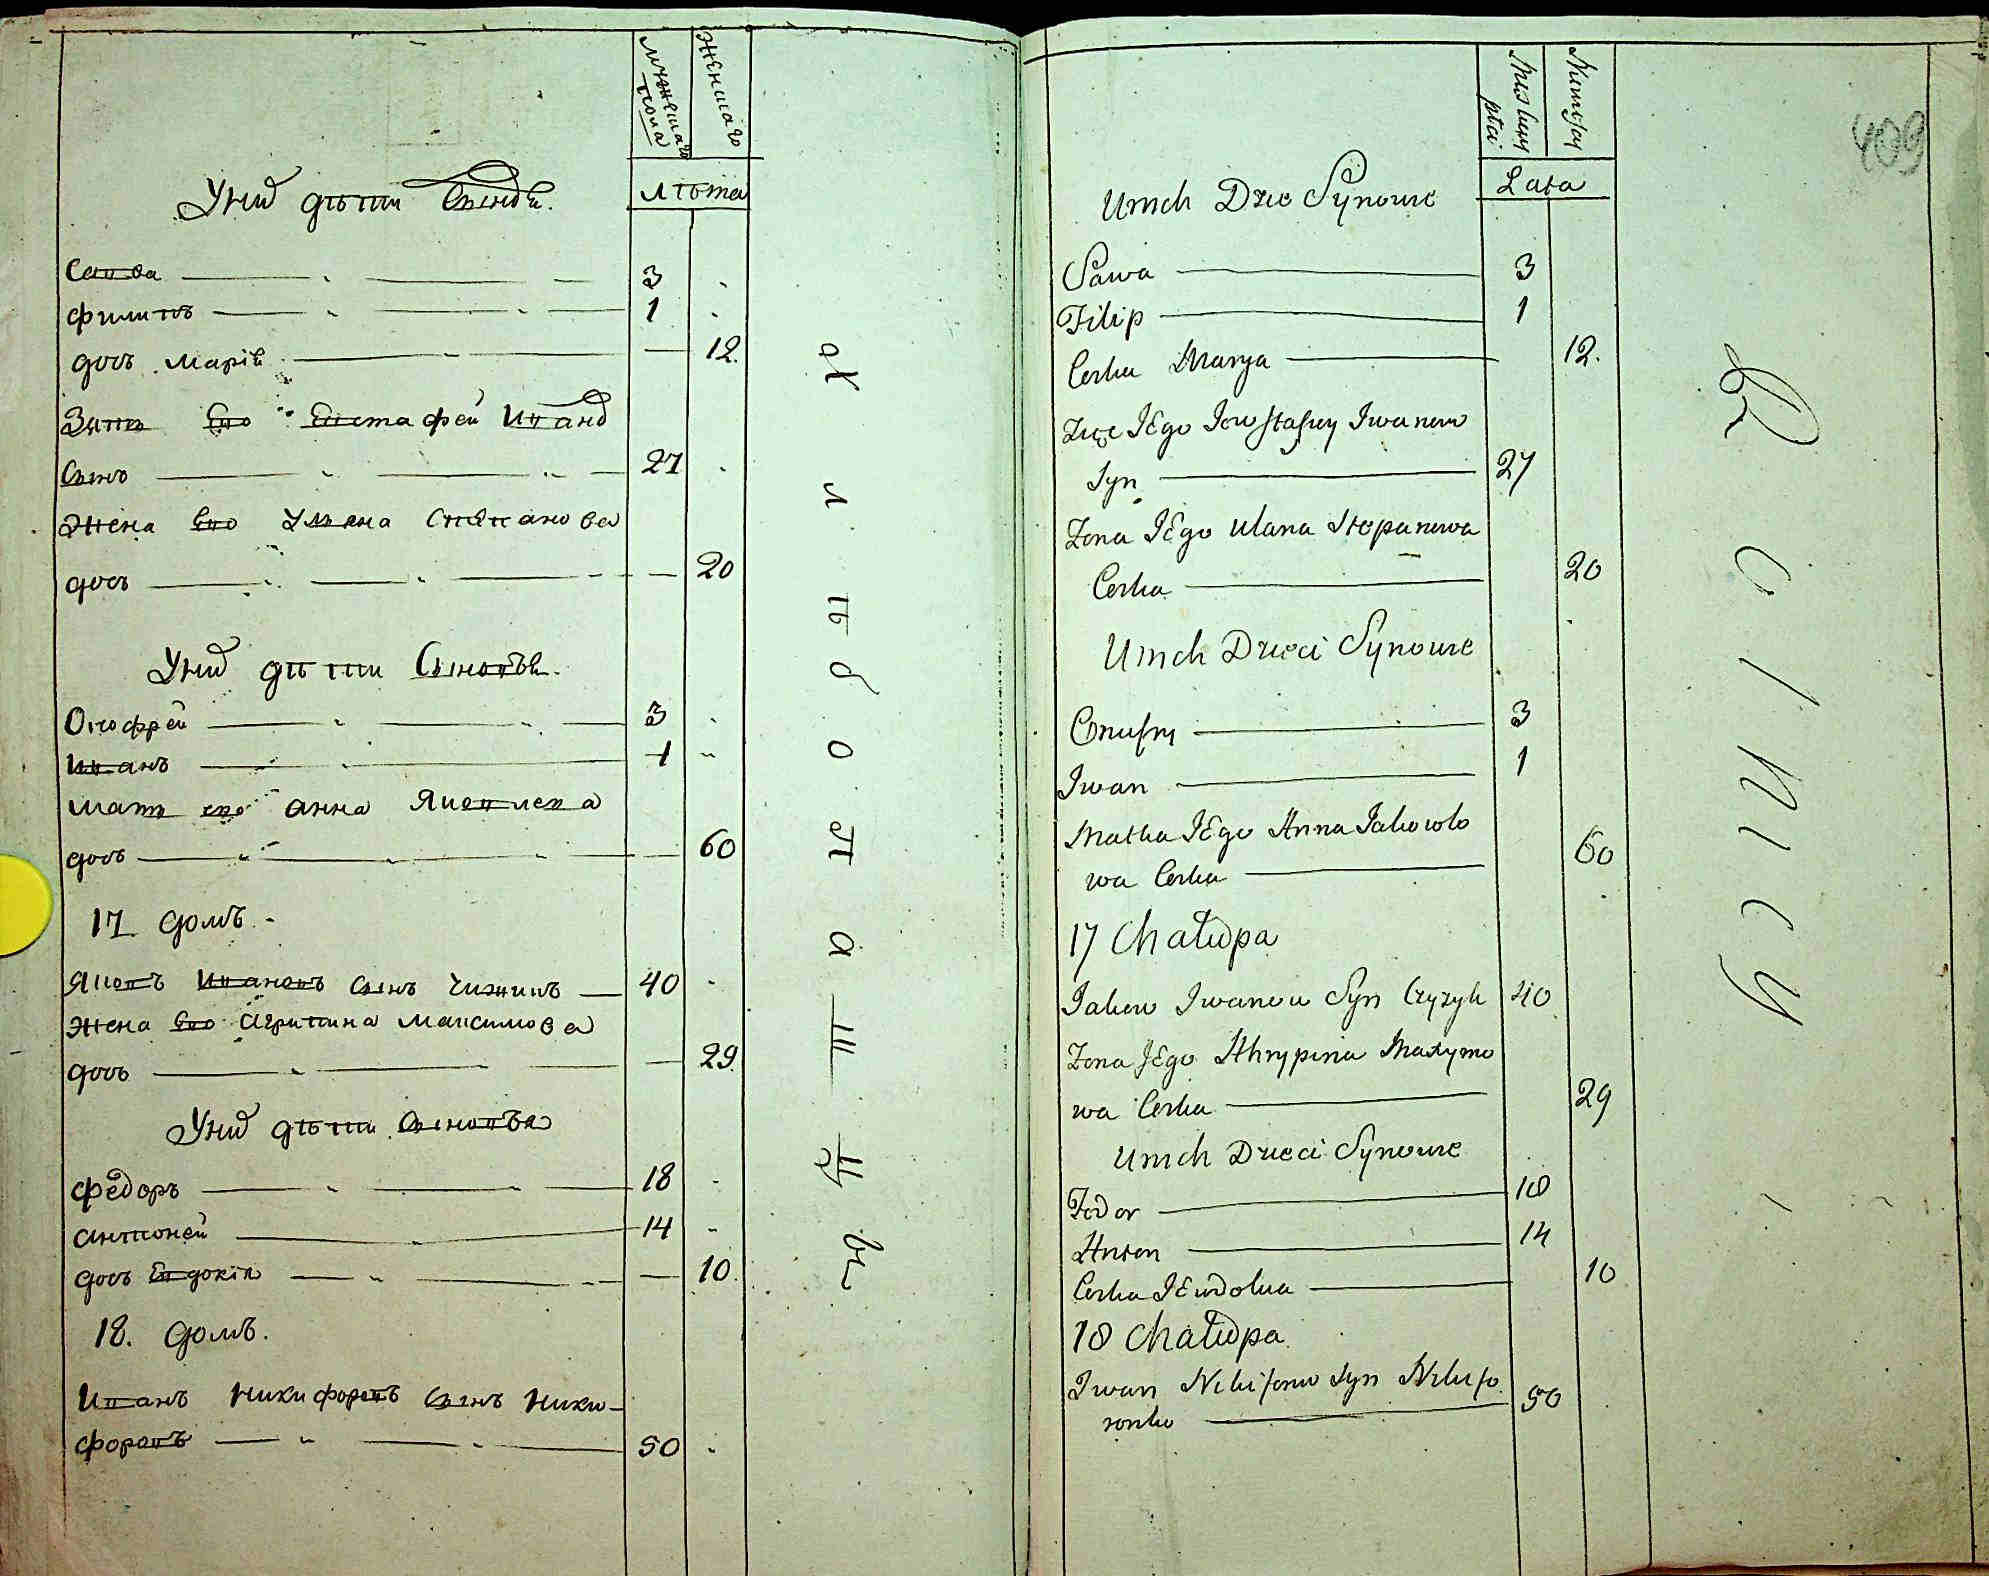 мужеска пола
женска
лѣта
Унихъ дѣти Сыновья.
Савва 3
Филипъ 1
дочь Марія 12.
Зять Его Евстафей Ивановъ
Сынъ 27
Жена Его Ульяна Степанова
дочь 20
Унихъ дѣти Сыновья.
Онофрей 3
Иванъ 1
мать его Анна Яковлева
дочь 60
17 домъ.
Яковъ Ивановъ сынъ Чижикъ 40
Жена Его Агрипина Максимова
дочь 29.
Унихъ дѣти Сыновья
Федоръ 18
Антоней 14
дочь Евдокія 10.
18. домъ.
Иванъ Никифоровъ Сынъ Ники-
форовъ 50
х л ы б о п а ш ц ы
409
Muskiey płci
Lata
Unich Dzie Synowie
Sawa 3
Filip 1
Corka Marya 12.
Zięc JEgo Jewstafiey Iwanow
Syn 27
Zona JEgo Ulana Stepanowa
Corka 20
Unich Dzieci Synowie
Onufry 3
Iwan 1
Matka JEgo Anna Jakowle
wa Corka 60
17 Chałupa
Jakow Iwanow Syn Czyzyk 40
Zona JEgo Ahrypina Maxymo
wa Corka 29
Unich Dzieci Synowie
Fodor 18
Anton 14
Corka JEwdokia 10
18 Chałupa
Iwan Nikiforow Syn Nikifo
ronko 50
R o l n i c y